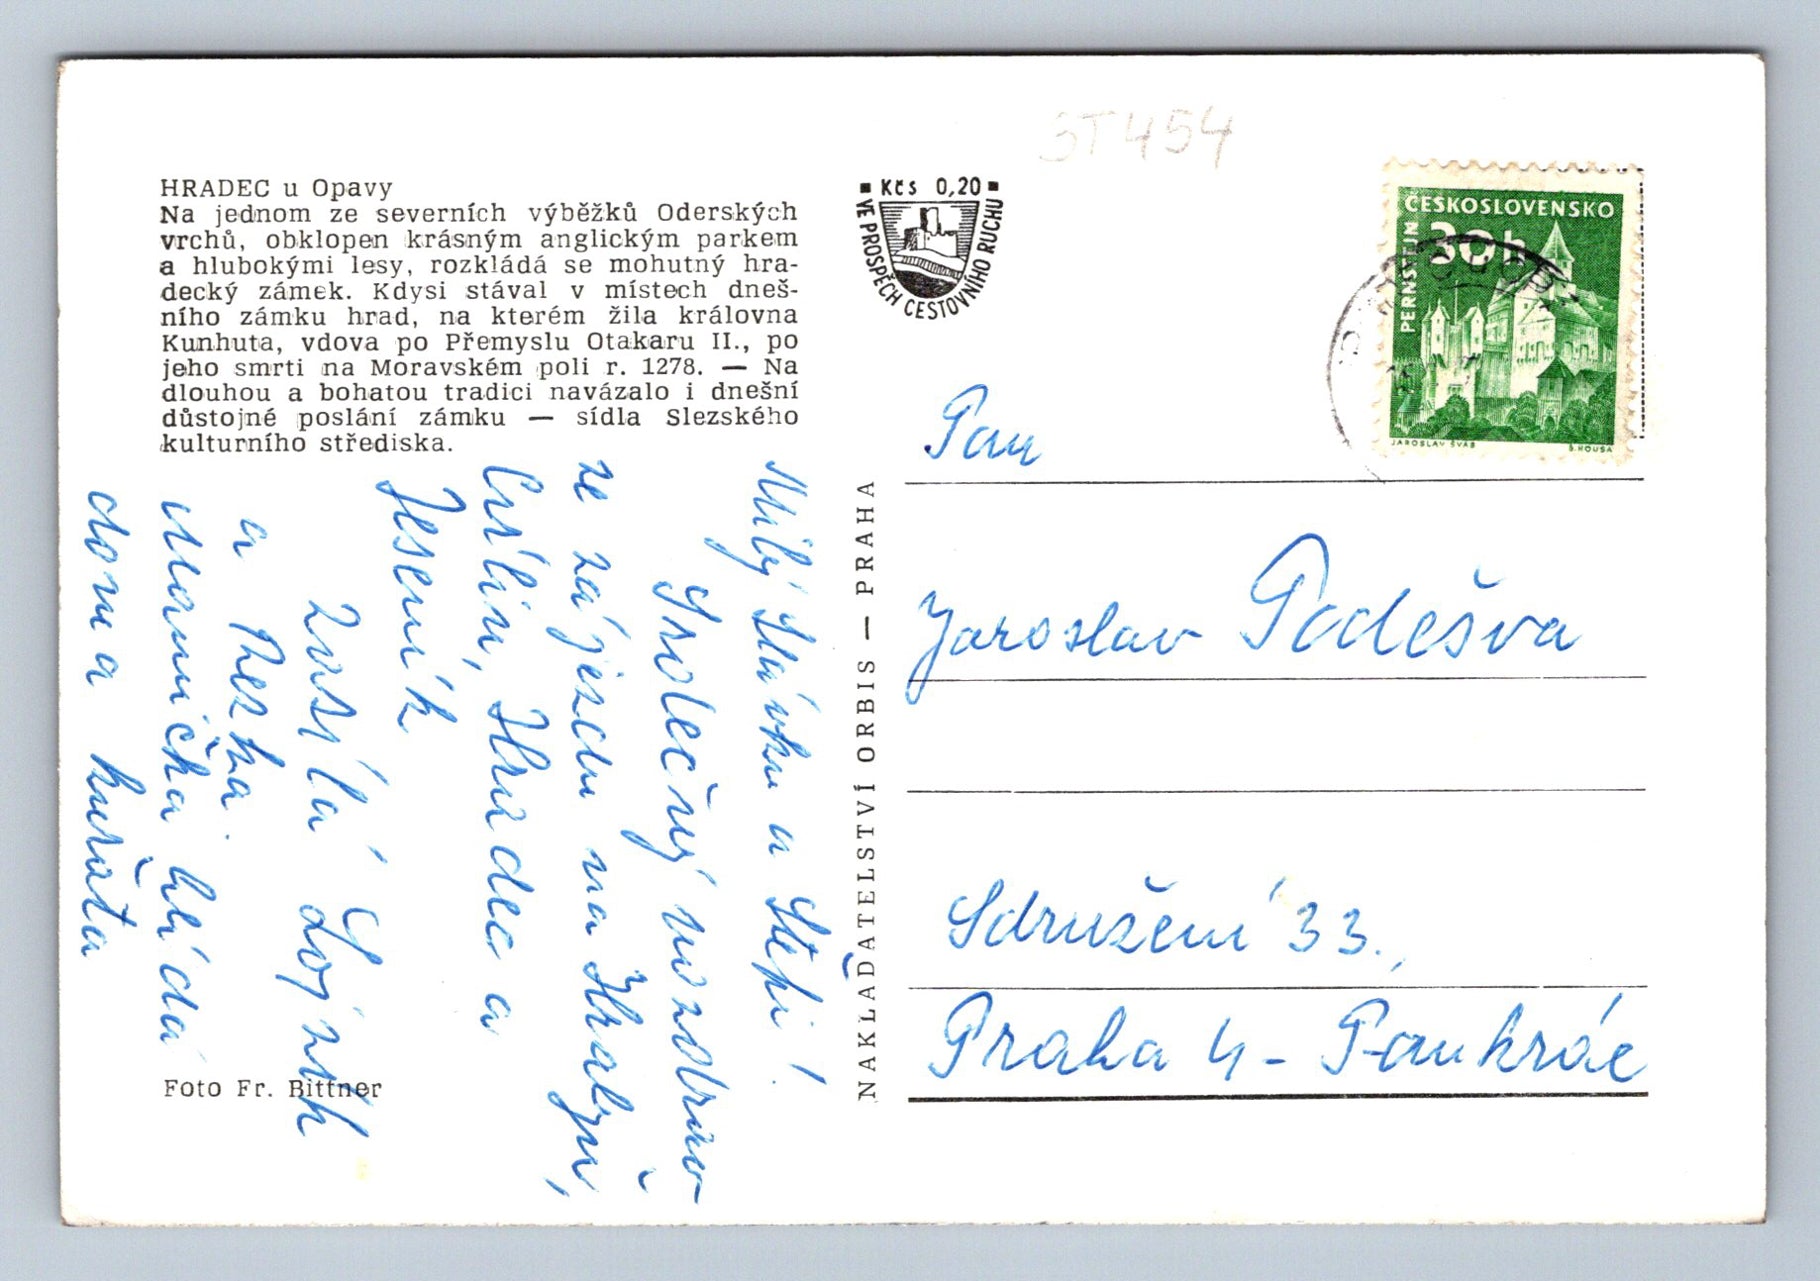 HRADEC u Opavy
Na jednom ze severních výběžků Oderských
vrchů, obklopen krásným anglickým parkem
a hlubokými lesy, rozkládá se mohutný hra-
decký zámek. Kdysi stával v místech dneš-
ního zámku hrad, na kterém žila královna
Kunhuta, vdova po Přemyslu Otakaru II., po
jeho smrti na Moravském poli r. 1278. — Na
dlouhou a bohatou tradici navázalo i dnešní
důstojné poslání zámku — sídla Slezského
kulturního střediska.
Milý Slávku a
Srdečný pozdrav
ze zájezdu na
Hradec a
Jeseník
Zasílá
a
Mamička hlídá
doma kuřata
Foto Fr. Bittner
NAKLADATELSTVÍ ORBIS — PRAHA
Kčs 0,20
VE PROSPĚCH CESTOVNÍHO RUCHU
ST454
ČESKOSLOVENSKO
30h
PERNŠTEJN
JAROSLAV ŠVÁB
B. HOUSA
Pan
Jaroslav Poděšva
Sdružení 33.,
Praha 4 - Pankrác